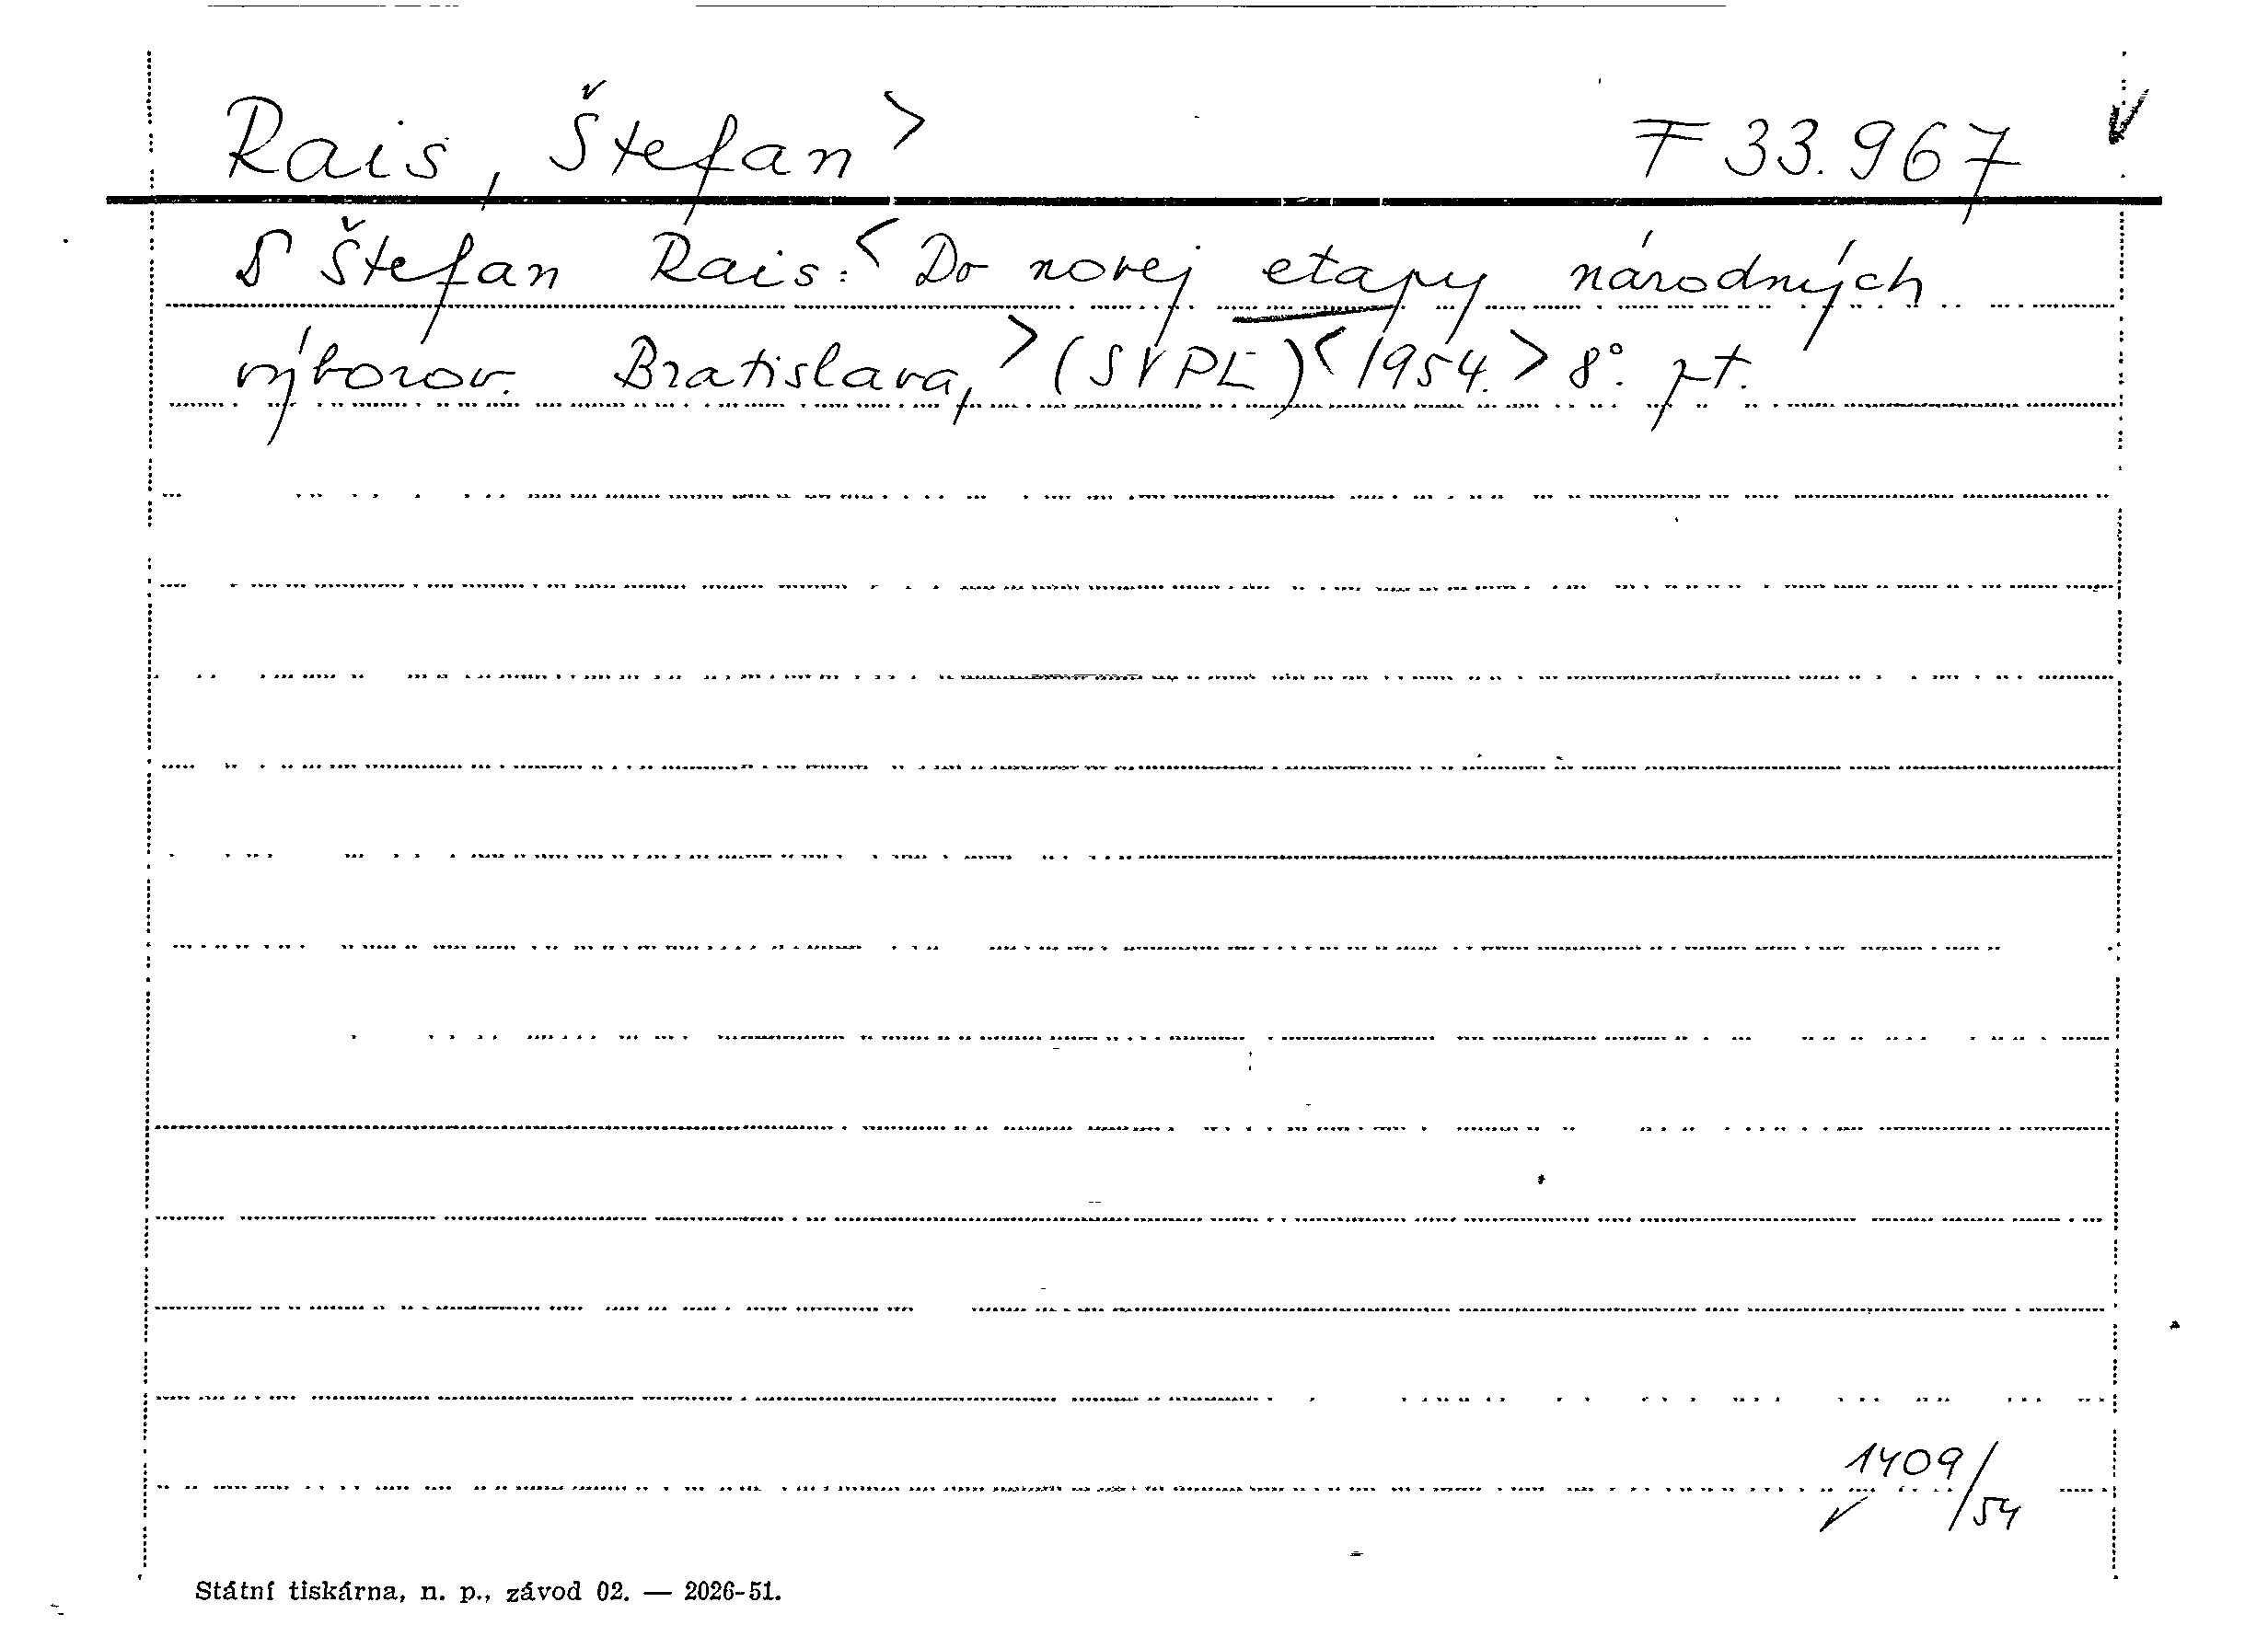 Rais, Štefan> F 33.967
S Štefan Rais:< Do novej etapy národných
výborov. Bratislava,> (SVPL)< 1954.> 8°. pt.
1409/54
Státní tiskárna, n. p., závod 02. — 2026-51.